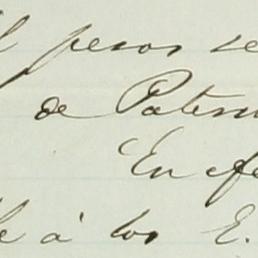 pesos se
de Patern
En efe
á los E.